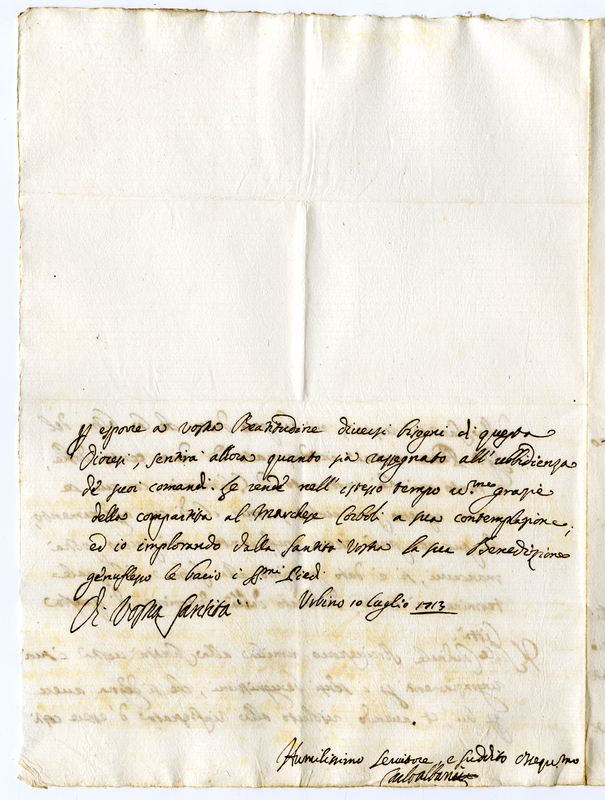 p esporre a Vostra Beatitudine diversi bisogni di questa
Diocesi, sentirà allora quanto sia rassegnato all'ubbidienza
de' suoi comandi. Le rende nell'istesso tempo um.me grazie
della compartita al Marchese Corboli a sua contemplazione;
ed io implorando dalla Santità Vostra la sua Benedizione
genuflesso le bacio i SS.mi Piedi
Di Vostra Santità Urbino 10 Luglio 1713
Humilissimo Servitore e Suddito osseq.mo
Carlo Albani